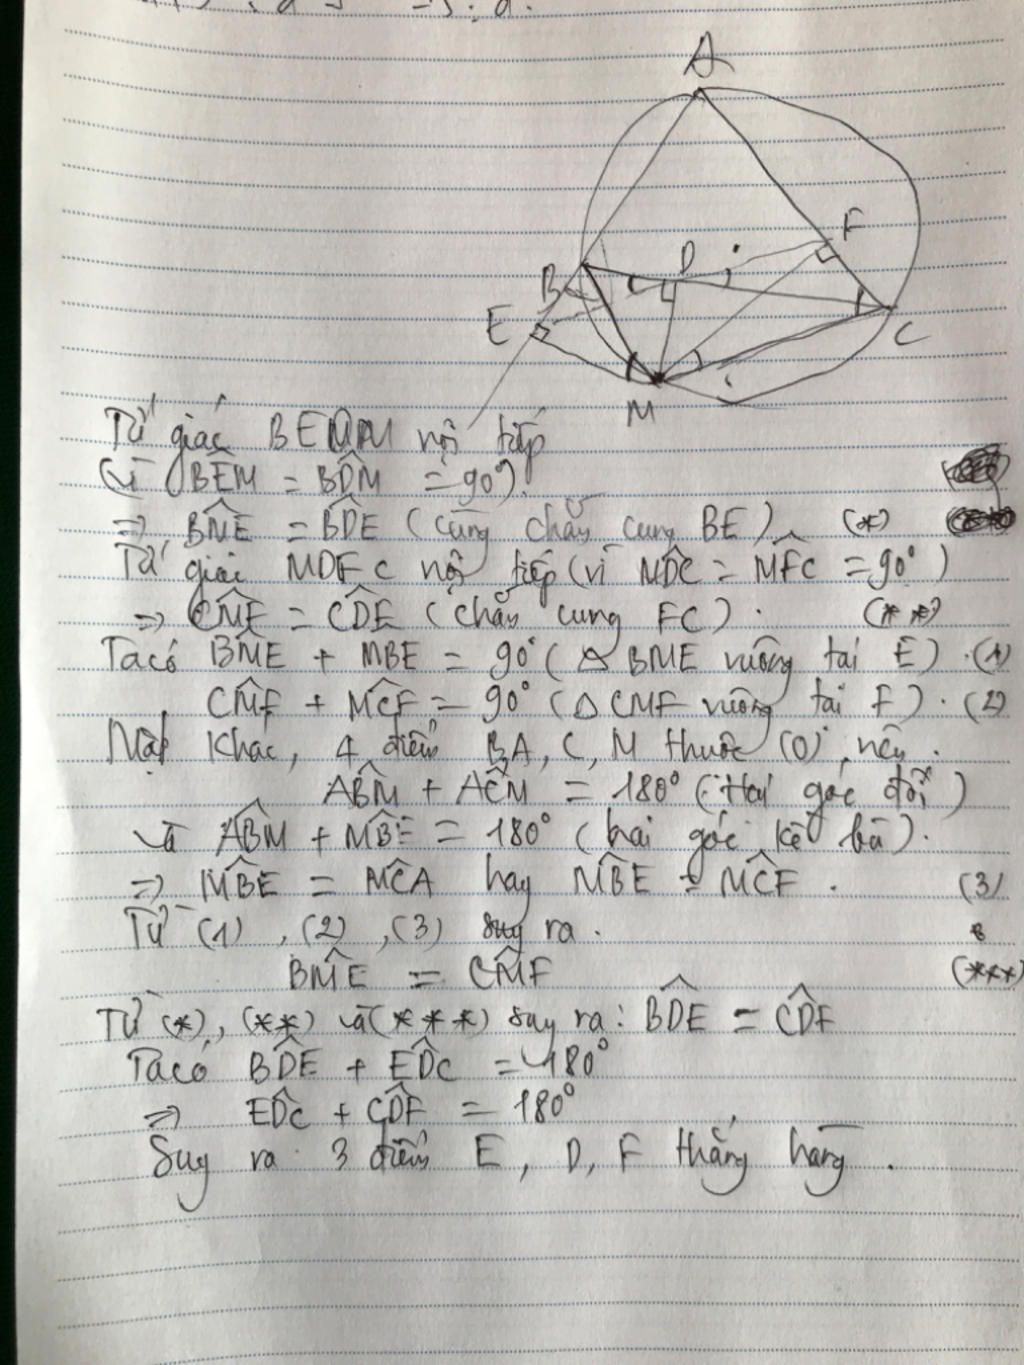 A
F
D
B
E
C
M
Tứ giác BEDM nội tiếp
(vì BÊM = BD̂M = 90°).
=> BM̂E = BD̂E (cùng chắn cung BE) (*)
Tứ giác MDFC nội tiếp (vì MD̂C = MF̂C = 90°)
=> CM̂F = CD̂F (chắn cung FC). (**)
Ta có BM̂E + MBE = 90° (△ BME vuông tại E). (1)
CM̂F + MĈF = 90° (△ CMF vuông tại F). (2)
Mặt khác, 4 điểm B,A, C, M thuộc (O) nên.
AB̂M + AĈM = 180° (Hai góc đối)
và AB̂M + MB̂E = 180° (hai góc kề bù).
=> MB̂E = MĈA hay MB̂E = MĈF. (3)
Từ (1), (2), (3) suy ra.
BM̂E = CM̂F (***)
Từ (*), (**) và (***) suy ra: BD̂E = CD̂F
Ta có BD̂E + ED̂C = 180°
=> ED̂C + CD̂F = 180°
Suy ra 3 điểm E, D, F thẳng hàng.